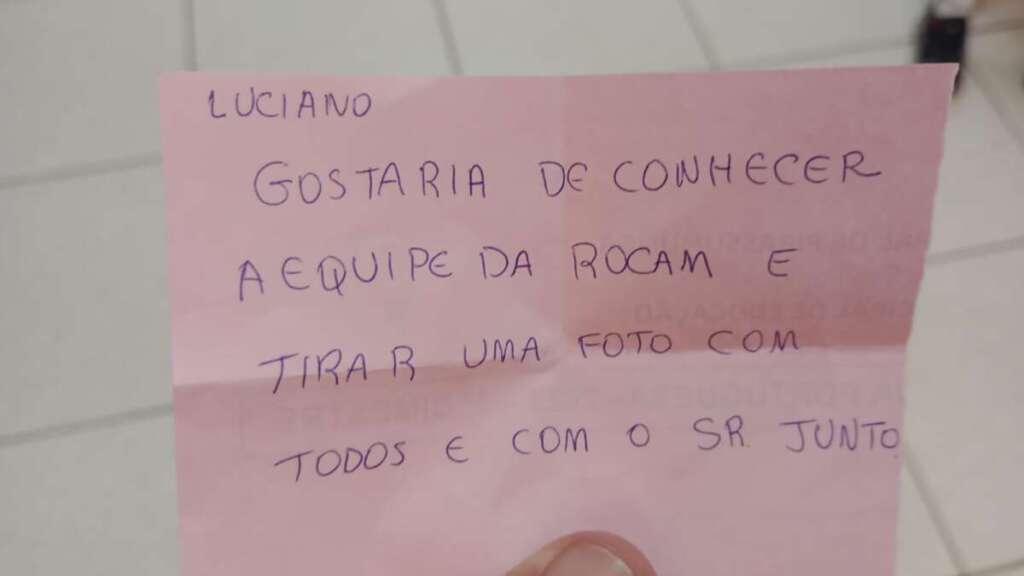 LUCIANO
GOSTARIA DE CONHECER
A EQUIPE DA ROCAM E
TIRAR UMA FOTO COM
TODOS E COM O SR. JUNTO.